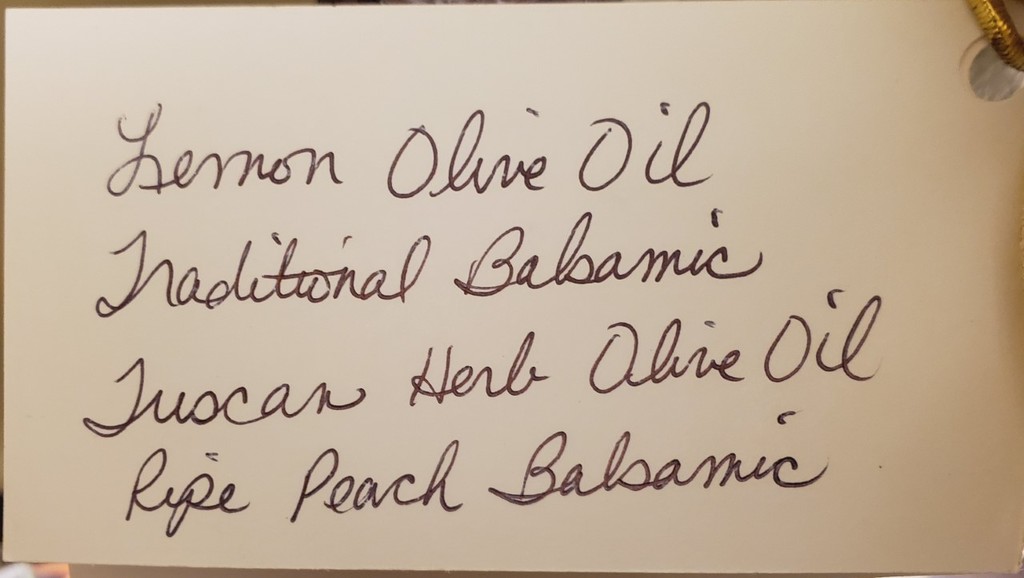 Lemon Olive Oil
Traditional Balsamic
Tuscan Herb Olive Oil
Ripe Peach Balsamic